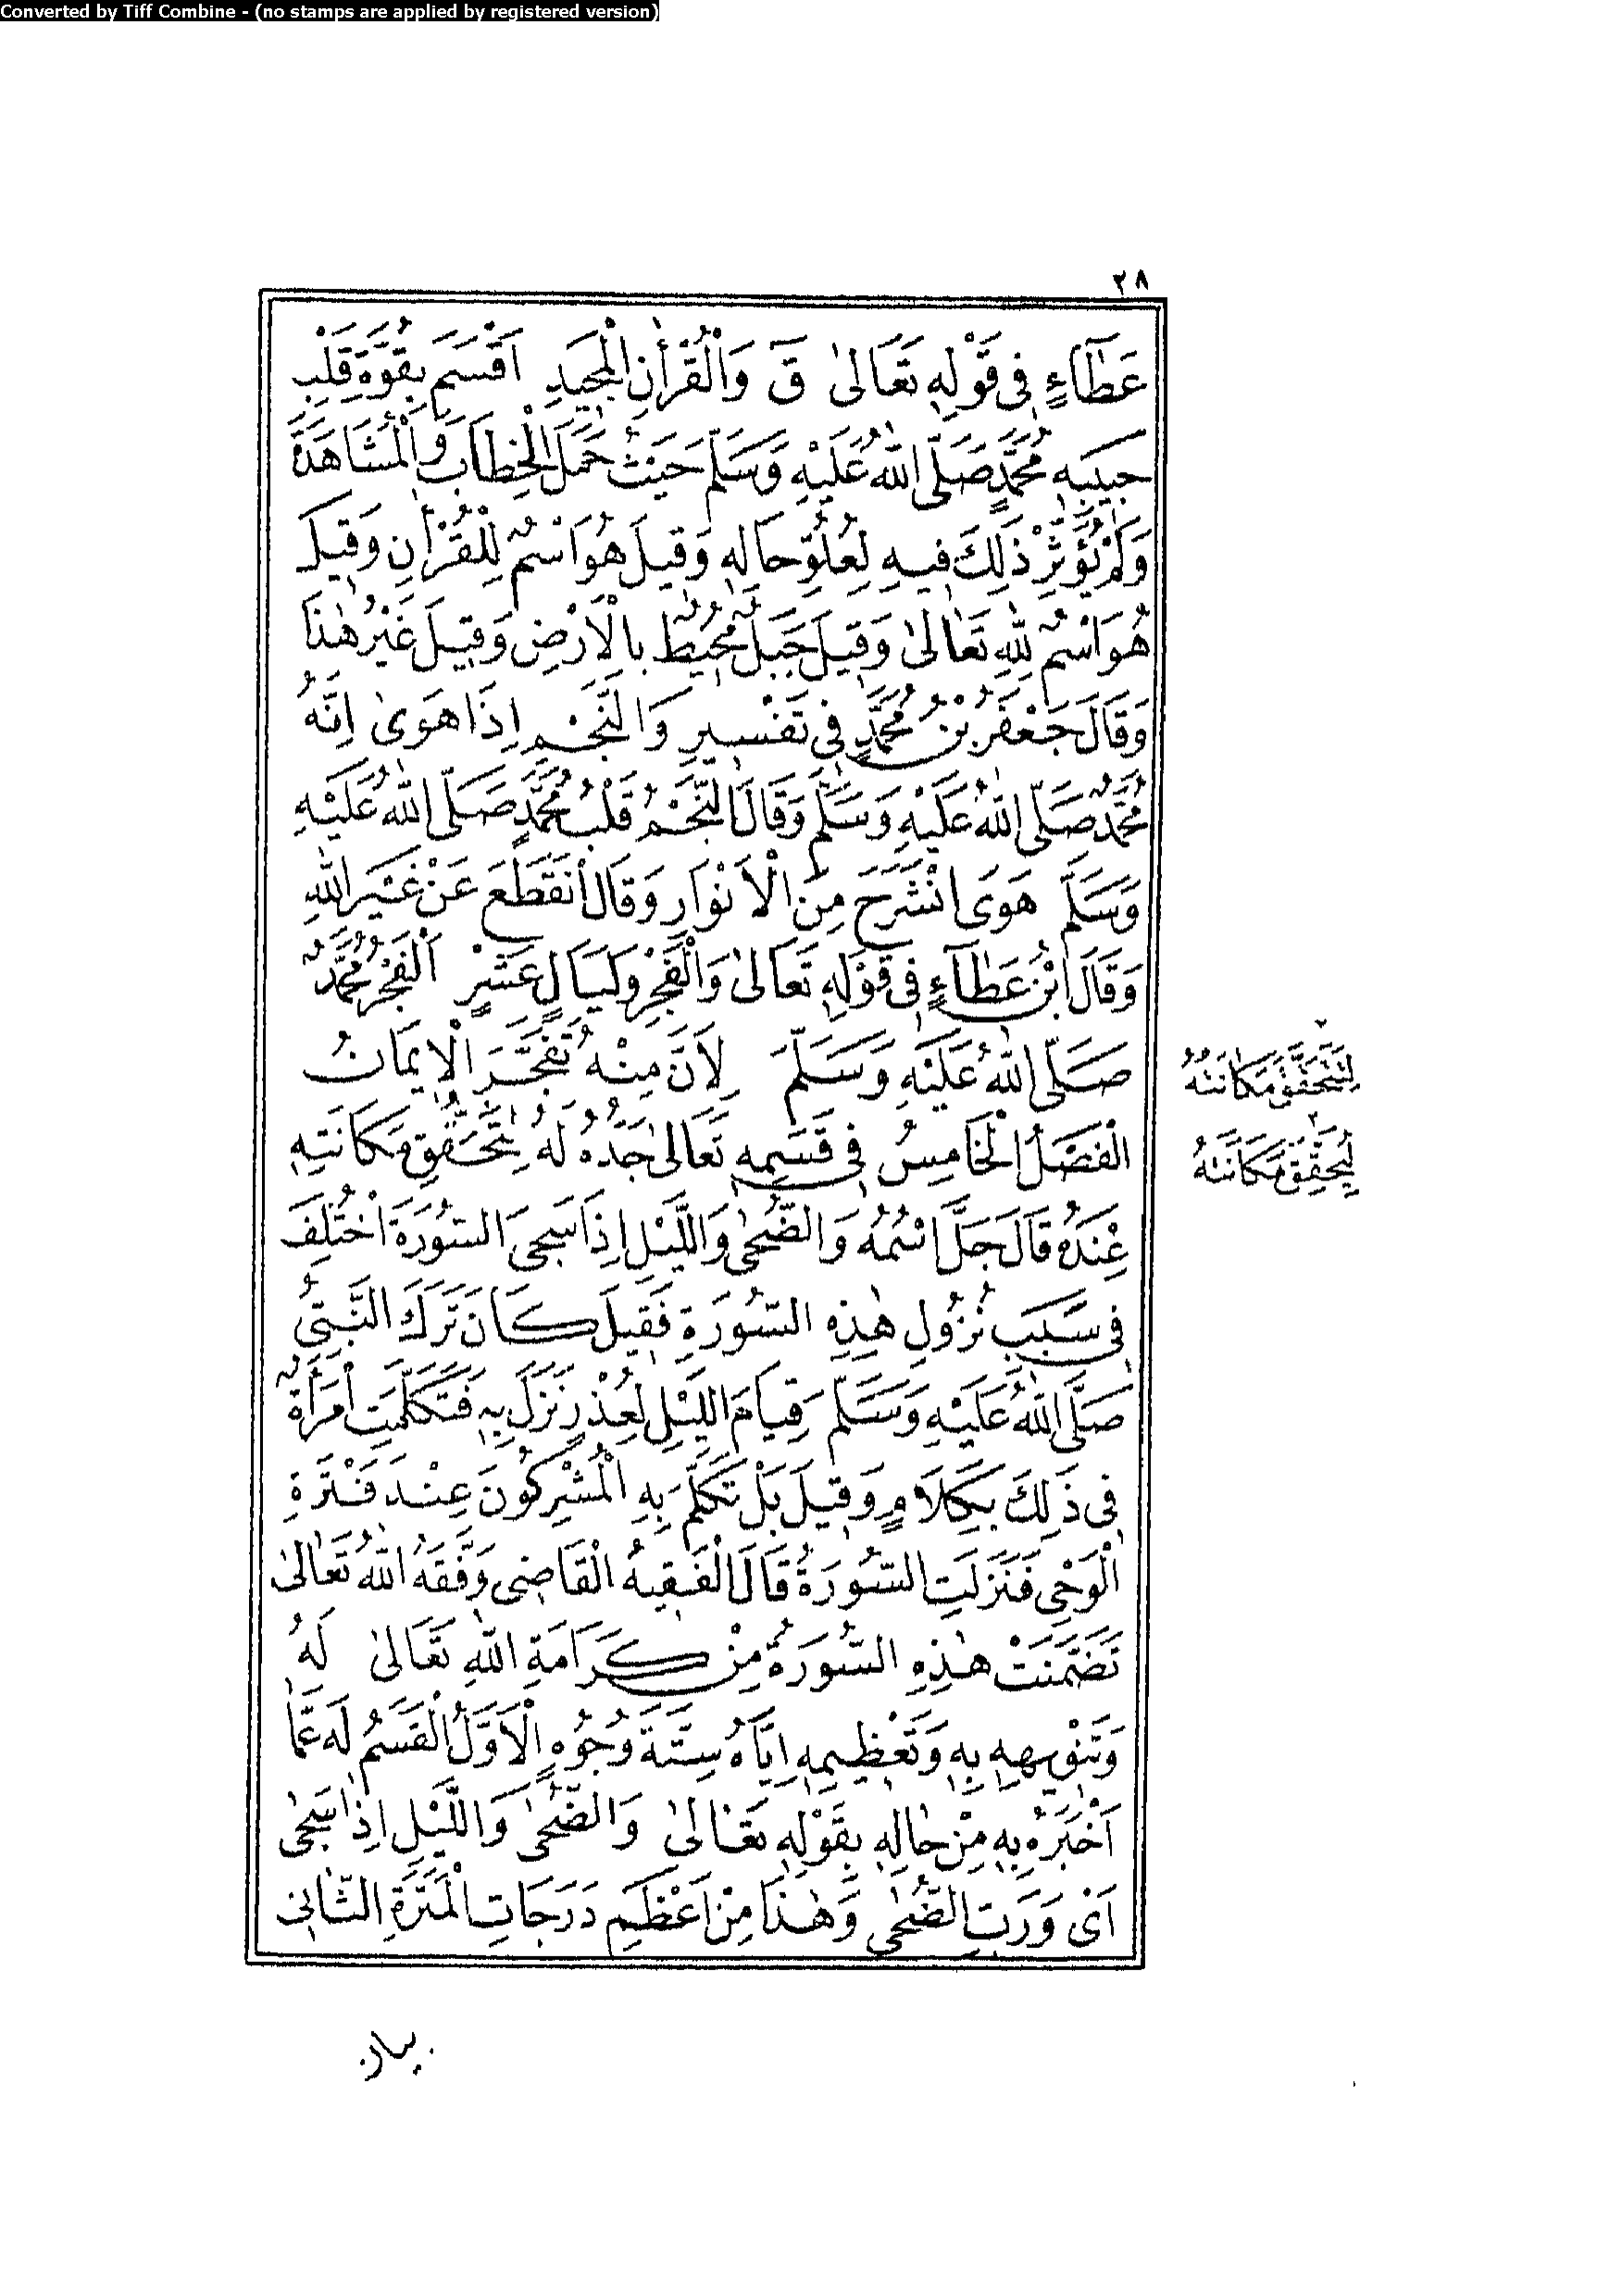 Converted by Tiff Combine - (no stamps are applied by registered version)
٢٨
عَطَآءٍ فِى قَوْلِهِ تَعَالىٰ قَ وَالْقُرْاٰنِ الْمَجِيدِ اَقْسَمَ بِقُوَّةِ قَلْبِ
حَبِيبِهِ مُحَمَّدٍ صَلَّى اللهُ عَلَيْهِ وَسَلَّمَ حَيْثُ حَمَلَ الْخِطَابَ وَالْمُشَاهَدَةَ
وَلَمْ يُؤَثِّرْ ذٰلِكَ فِيهِ لِعُلُوِّ حَالِهِ وَقِيلَ هُوَ اسْمٌ لِلْقُرْاٰنِ وَقِيلَ
هُوَ اسْمٌ لِلهِ تَعَالىٰ وَقِيلَ جَبَلٌ مُحِيطٌ بِالْاَرْضِ وَقِيلَ غَيْرُ هٰذَا
وَقَالَ جَعْفَرُ بْنُ مُحَمَّدٍ فِى تَفْسِيرِ وَالنَّجْمِ اِذَا هَوىٰ اِنَّهُ
مُحَمَّدٌ صَلَّى اللهُ عَلَيْهِ وَسَلَّمَ وَقَالَ النَّجْمُ قَلْبُ مُحَمَّدٍ صَلَّى اللهُ عَلَيْهِ
وَسَلَّمَ هَوَى انْشَرَحَ مِنَ الْاَنْوَارِ وَقَالَ انْقَطَعَ عَنْ غَيْرِ اللهِ
وَقَالَ ابْنُ عَطَآءٍ فِى قَوْلِهِ تَعَالىٰ وَالْفَجْرِ وَلَيَالٍ عَشْرٍ اَلْفَجْرُ مُحَمَّدٌ
صَلَّى اللهُ عَلَيْهِ وَسَلَّمَ لِاَنَّ مِنْهُ تَفَجَّرَ الْاِيمَانُ
الْفَصْلُ الْخَامِسُ فِى قَسَمِهِ تَعَالىٰ جَدُّهُ لَهُ لِتَحَقُّقِ مَكَانَتِهِ
عِنْدَهُ قَالَ جَلَّ اسْمُهُ وَالضُّحىٰ وَاللَّيْلِ اِذَا سَجىٰ السُّورَةَ اخْتُلِفَ
فِى سَبَبِ نُزُولِ هٰذِهِ السُّورَةِ فَقِيلَ كَانَ تَرَكَ النَّبِىُّ
صَلَّى اللهُ عَلَيْهِ وَسَلَّمَ قِيَامَ اللَّيْلِ لِعُذْرٍ نَزَلَ بِهِ فَتَكَلَّمَتِ امْرَأَةٌ
فِى ذٰلِكَ بِكَلَامٍ وَقِيلَ بَلْ تَكَلَّمَ بِهِ الْمُشْرِكُونَ عِنْدَ فَتْرَةِ
الْوَحْىِ فَنَزَلَتِ السُّورَةُ قَالَ الْفَقِيهُ الْقَاضِى وَفَّقَهُ اللهُ تَعَالىٰ
تَضَمَّنَتْ هٰذِهِ السُّورَةُ مِنْ كَرَامَةِ اللهِ تَعَالىٰ لَهُ
وَتَنْوِيهِهِ بِهِ وَتَعْظِيمِهِ اِيَّاهُ سِتَّةَ وُجُوهٍ الْاَوَّلُ الْقَسَمُ لَهُ عَمَّا
اَخْبَرَهُ بِهِ مِنْ حَالِهِ بِقَوْلِهِ تَعَالىٰ وَالضُّحىٰ وَاللَّيْلِ اِذَا سَجىٰ
اَىْ وَرَبِّ الضُّحىٰ وَهٰذَا مِنْ اَعْظَمِ دَرَجَاتِ الْمَبَرَّةِ الثَّانِى
٢
لِتَتَحَقَّقَ مَكَانَتُهُ
٢
لِيُحَقِّقَ مَكَانَتَهُ